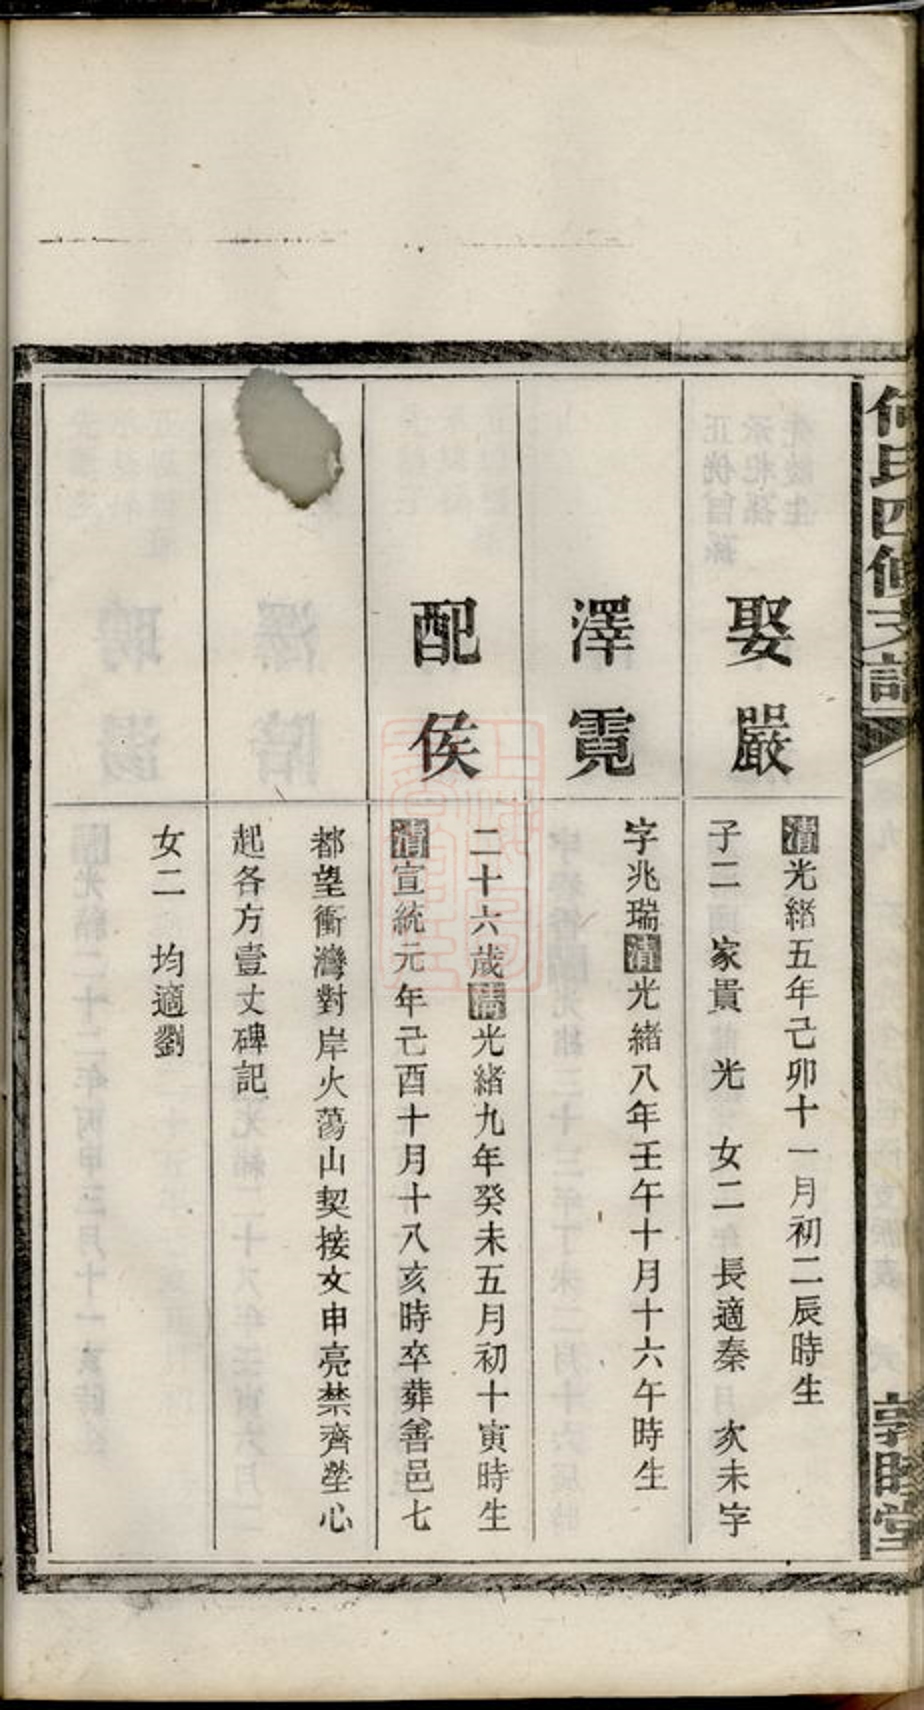 何氏四修支譜
敦睦堂
娶嚴
清光緒五年己卯十一月初二辰時生
子二 家貴 光 女二 長適秦 次未字
澤霓
字兆瑞清光緒八年壬午十月十六午時生
配侯
二十六歲清光緒九年癸未五月初十寅時生
清宣統元年己酉十月十八亥時卒葬善邑七
都望衝灣對岸火蕩山契接文申亮禁齊塋心
起各方壹丈碑記
女二 均適劉